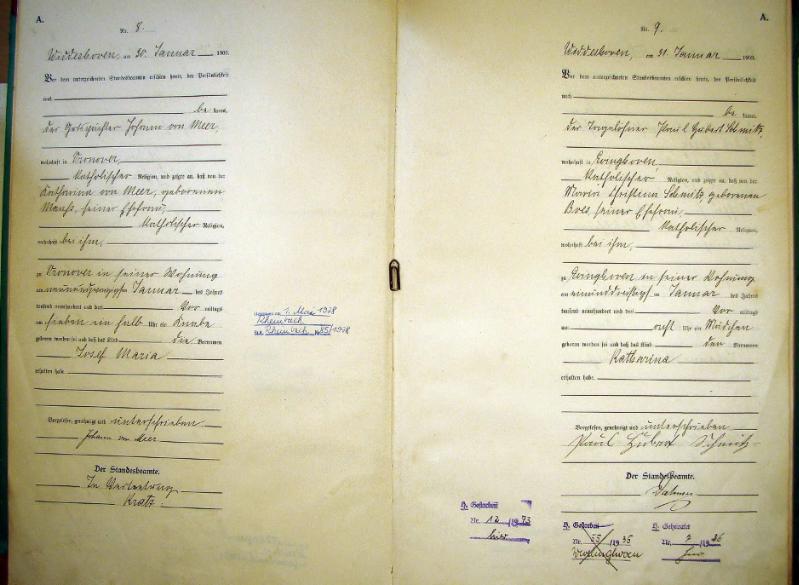 A.
Nr. 8.
Widdeshoven, am 30. Januar 1903.
Vor dem unterzeichneten Standesbeamten erschien heute, der Persönlichkeit
nach
be kannt,
der Gutspächter Johann von Meer,
wohnhaft in
katholischer Religion, und zeigte an, daß von der
Katharina von Meer, geborenen
seiner Ehefrau,
katholischer Religion,
wohnhaft bei ihm,
zu in seiner Wohnung
am neunundzwanzigsten Januar des Jahres
tausend neunhundert und drei Vor mittags
um sieben ein halb Uhr ein Knabe
geboren worden sei und daß das Kind die Vornamen
Josef Maria
erhalten habe.
Vorgelesen, genehmigt und unterschrieben
Johann von Meer
Der Standesbeamte.
In Vertretung
Kratz.
1. Mai 1978
Rheinbach
Rheinbach Nr. 85/1978
A.
Nr. 9.
Widdeshoven, am 31. Januar 1903.
Vor dem unterzeichneten Standesbeamten erschien heute, der Persönlichkeit
nach
be kannt,
der Tagelöhner Paul Hubert Schmitz,
wohnhaft in
katholischer Religion, und zeigte an, daß von der
Maria Christina Schmitz, geborenen
seiner Ehefrau,
katholischer Religion,
wohnhaft bei ihm,
zu in seiner Wohnung
am einunddreißigsten Januar des Jahres
tausend neunhundert und drei Vor mittags
um acht Uhr ein Mädchen
geboren worden sei und daß das Kind den Vornamen
Katharina
erhalten habe.
Vorgelesen, genehmigt und unterschrieben
Paul Hubert Schmitz
Der Standesbeamte.
Nr. 12 1973
Nr. 55 1935
H. Geheiratet
Nr. 7 1936